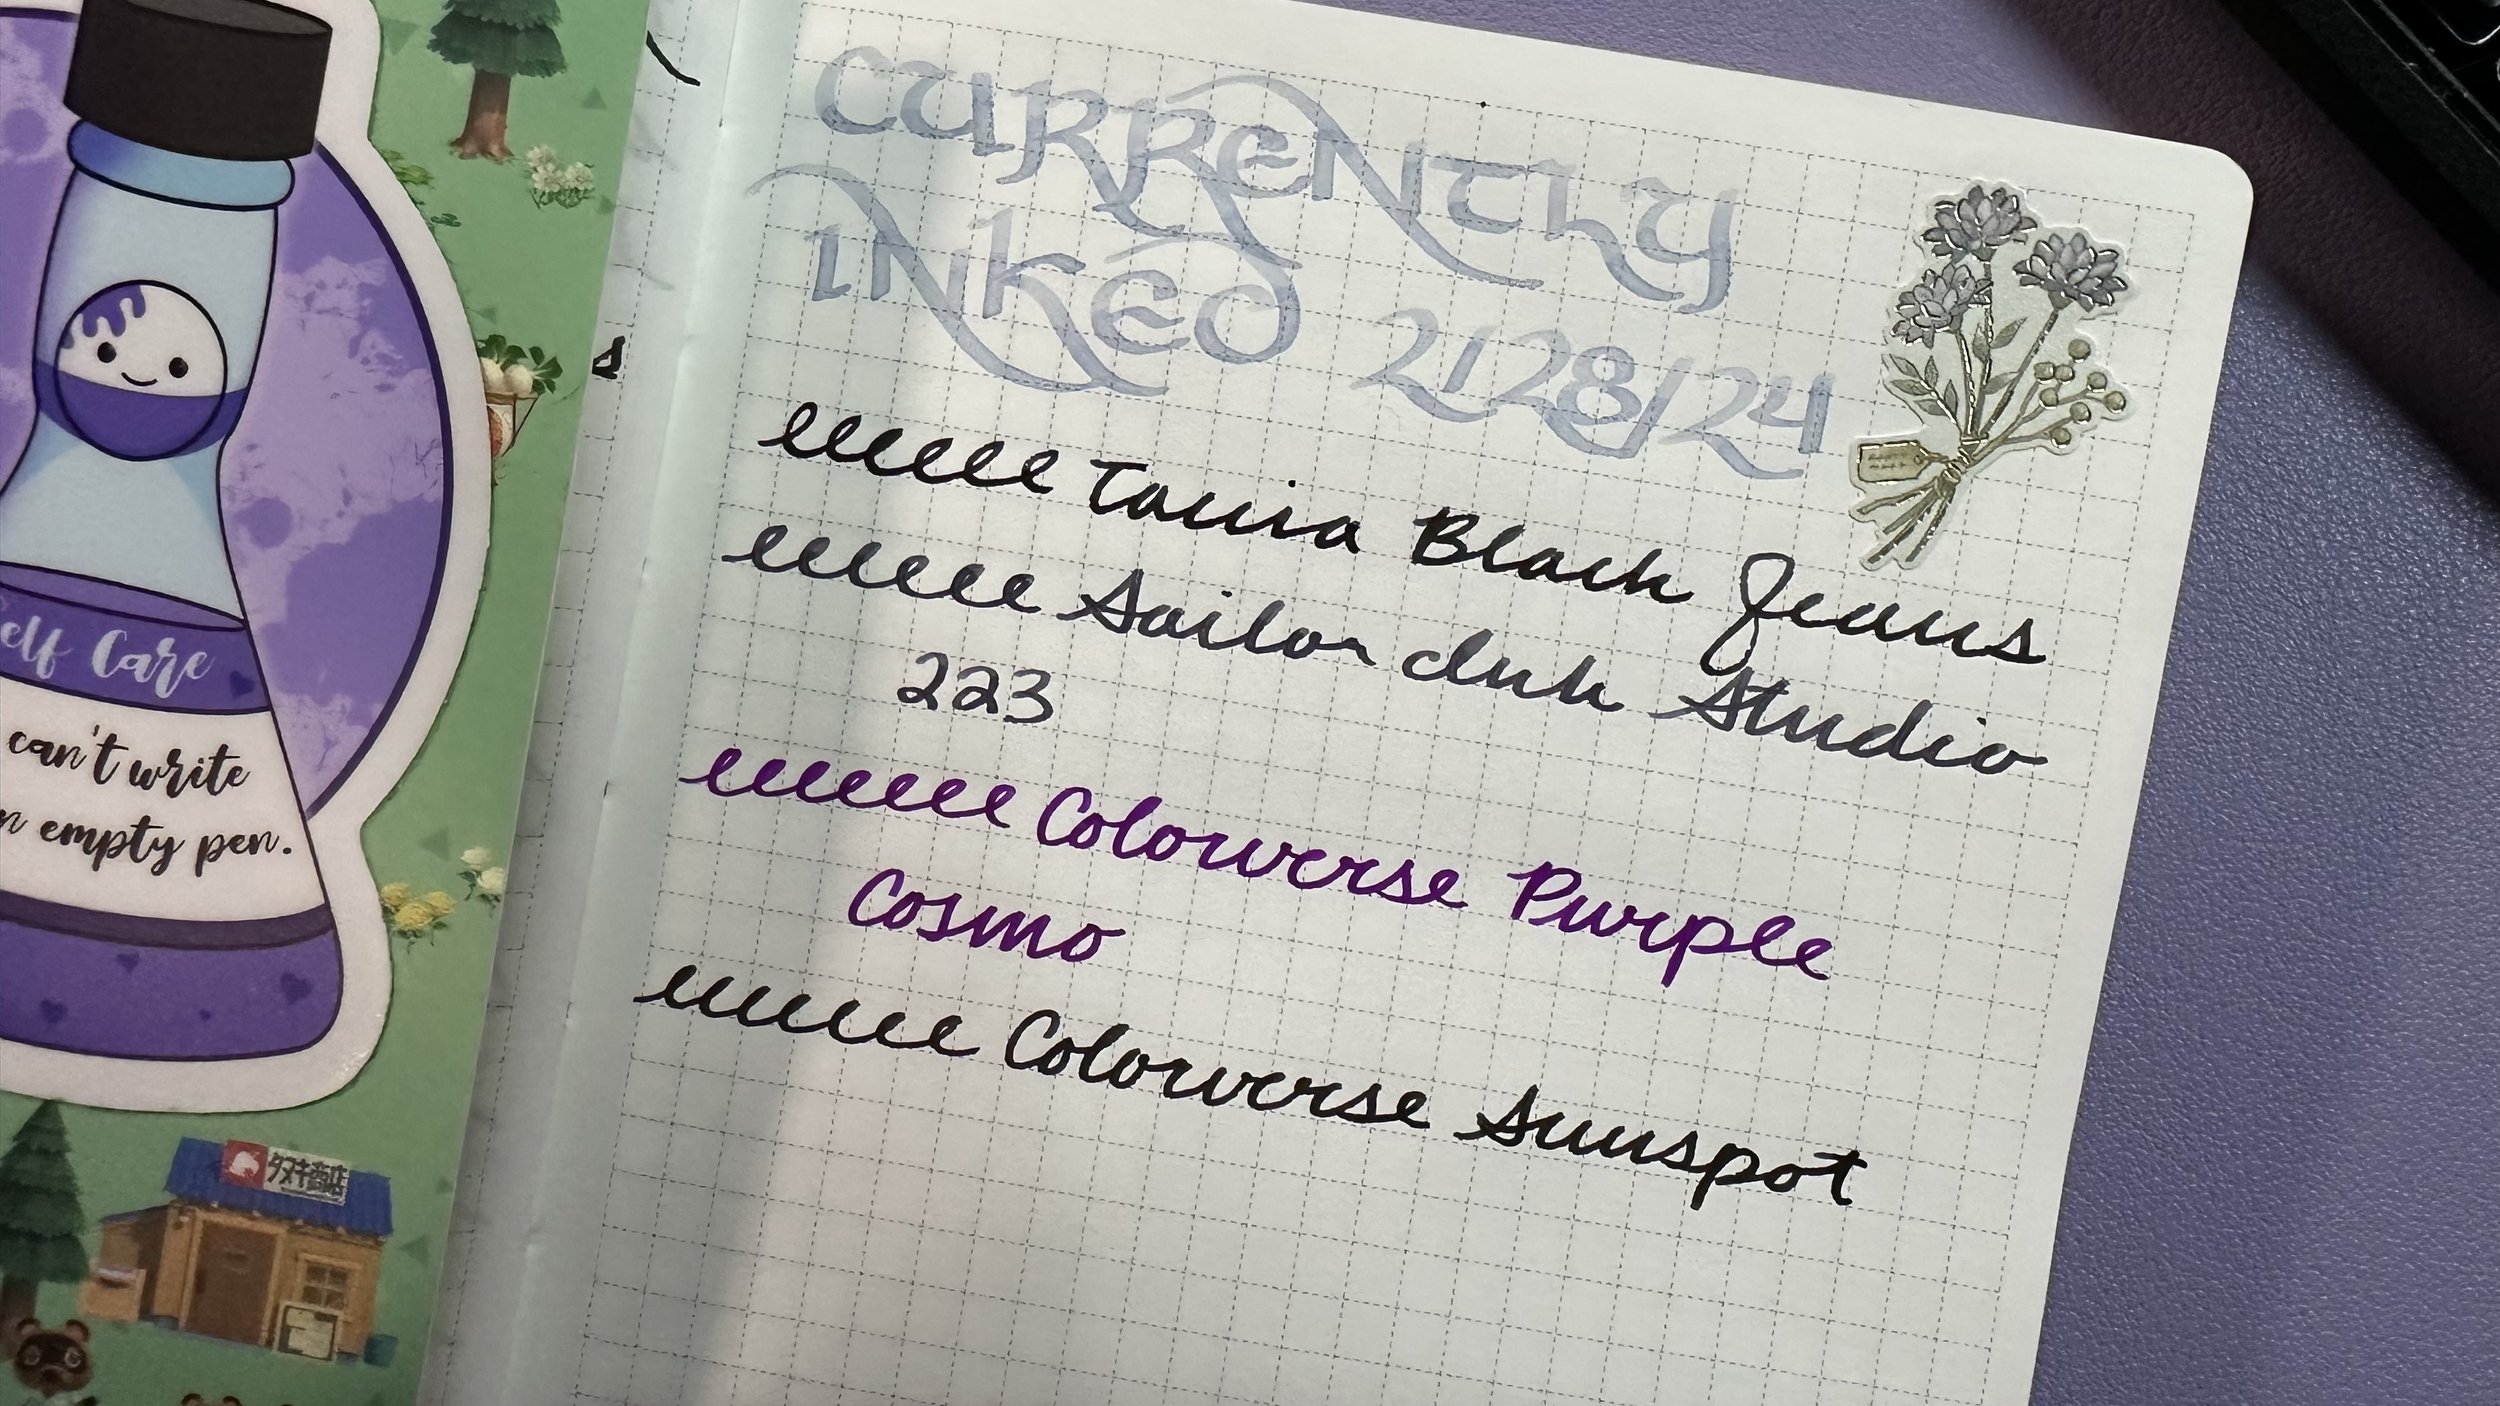 Self Care
can't write
n empty pen.
タヌキ商店
s
CURRENTLY
INKED 2/28/24
Taccia Black Jeans
Sailor ink Studio
223
Colorverse Purple
Cosmo
Colorverse Sunspot